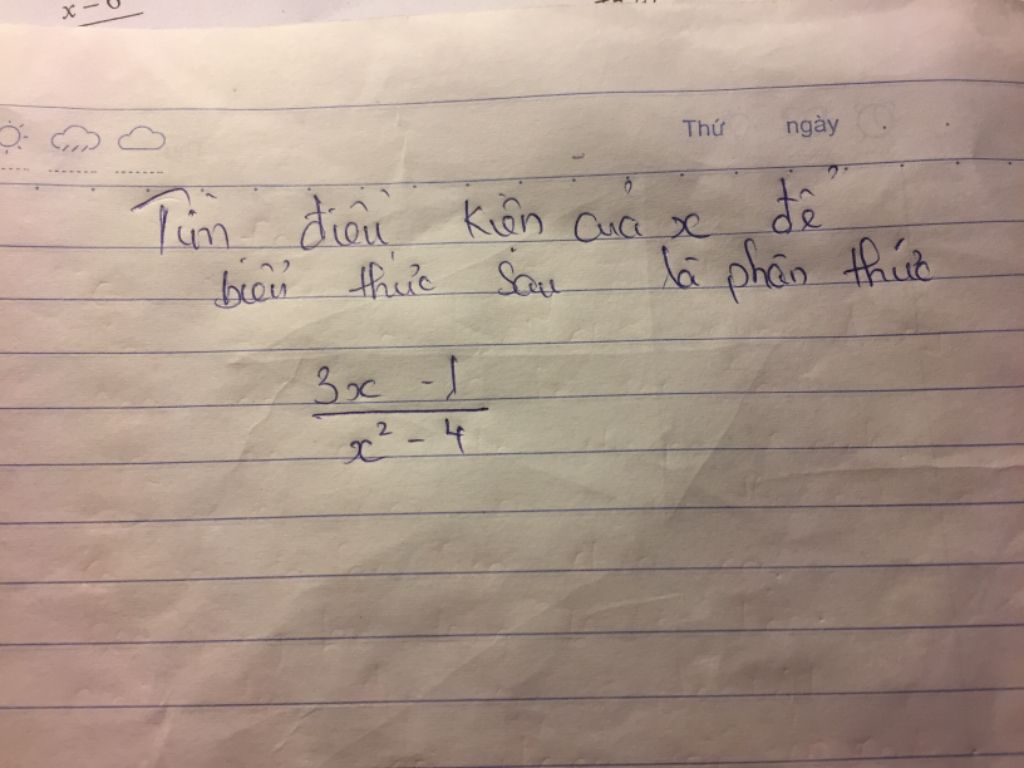 x - 6
Thứ ngày
Tìm điều kiện của x để
biểu thức sau là phân thức
3x - 1
x² - 4